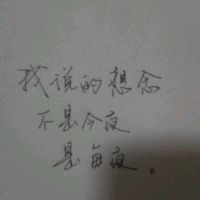 我说的想念
不是今夜
是每夜。